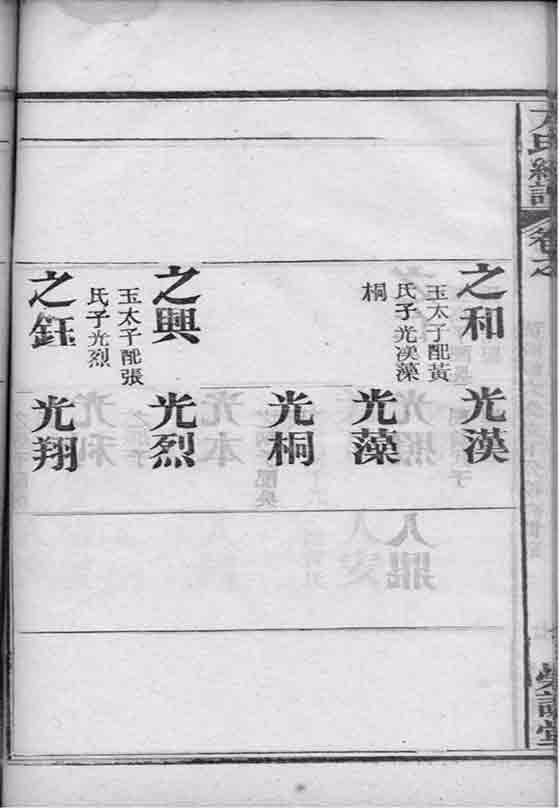 卷之
之和
玉太子配黃
氏子光漢藻
桐
之興
玉太子配張
氏子光烈
之鈺
光漢
光藻
光桐
光烈
光翔